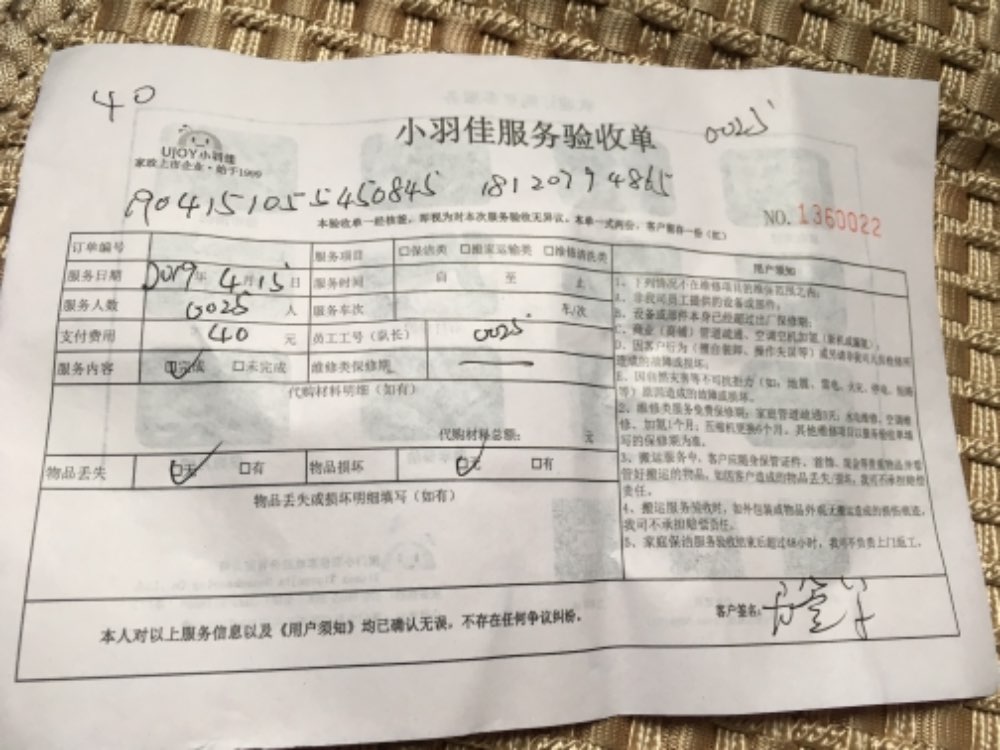 40
小羽佳服务验收单
0025
UJOY小羽佳
家政上市企业·始于1999
1904151055450845 18120794865
本验收单一经核签，即视为对本次服务验收无异议。本单一式两份，客户留存一份（红）
NO. 1360022
订单编号 服务项目 □保洁类 □搬家运输类 □维修清洗类
服务日期 2019年 4月15日 服务时间 自 至 止
服务人数 0025 人 服务车次 车/次
支付费用 40 元 员工工号（队长） 0025
服务内容 □完成 □未完成 维修类保修期 —
代购材料明细（如有）
代购材料总额： 元
物品丢失 □无 □有 物品损坏 □无 □有
物品丢失或损坏明细填写（如有）
用户须知
1、下列情况不在维修项目的维保范围之内：
A、非我司员工提供的设备或部件；
B、设备或部件本身已经超过出厂保修期；
C、商业（商铺）管道疏通、空调空机加氟
D、因客户行为（擅自装卸、操作失误等）或另请非我司人员检修所
造成的故障或损坏；
E、因自然灾害等不可抗拒力（如：地震、雷电、火灾、停电、短路
等）原因造成的故障或损坏。
2、维修类服务免费保修期：家庭管道疏通3天；水电维修、空调维
修、加氟1个月；压缩机更换6个月。其他维修项目以服务验收单填
写的保修期为准。
3、搬运服务中，客户应随身保管证件、首饰、现金等贵重物品并看
管好搬运的物品，如因客户造成的物品丢失/损坏，我司不承担赔偿
责任。
4、搬运服务验收时，如外包装或物品外观无搬运造成的损伤痕迹，
我司不承担赔偿责任。
5、家庭保洁服务验收结束后超过48小时，我司不负责上门返工。
本人对以上服务信息以及《用户须知》均已确认无误，不存在任何争议纠纷。
客户签名：